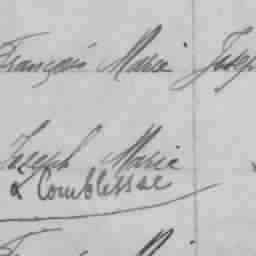 François Marie Josep
Joseph Marie
à Comblessac